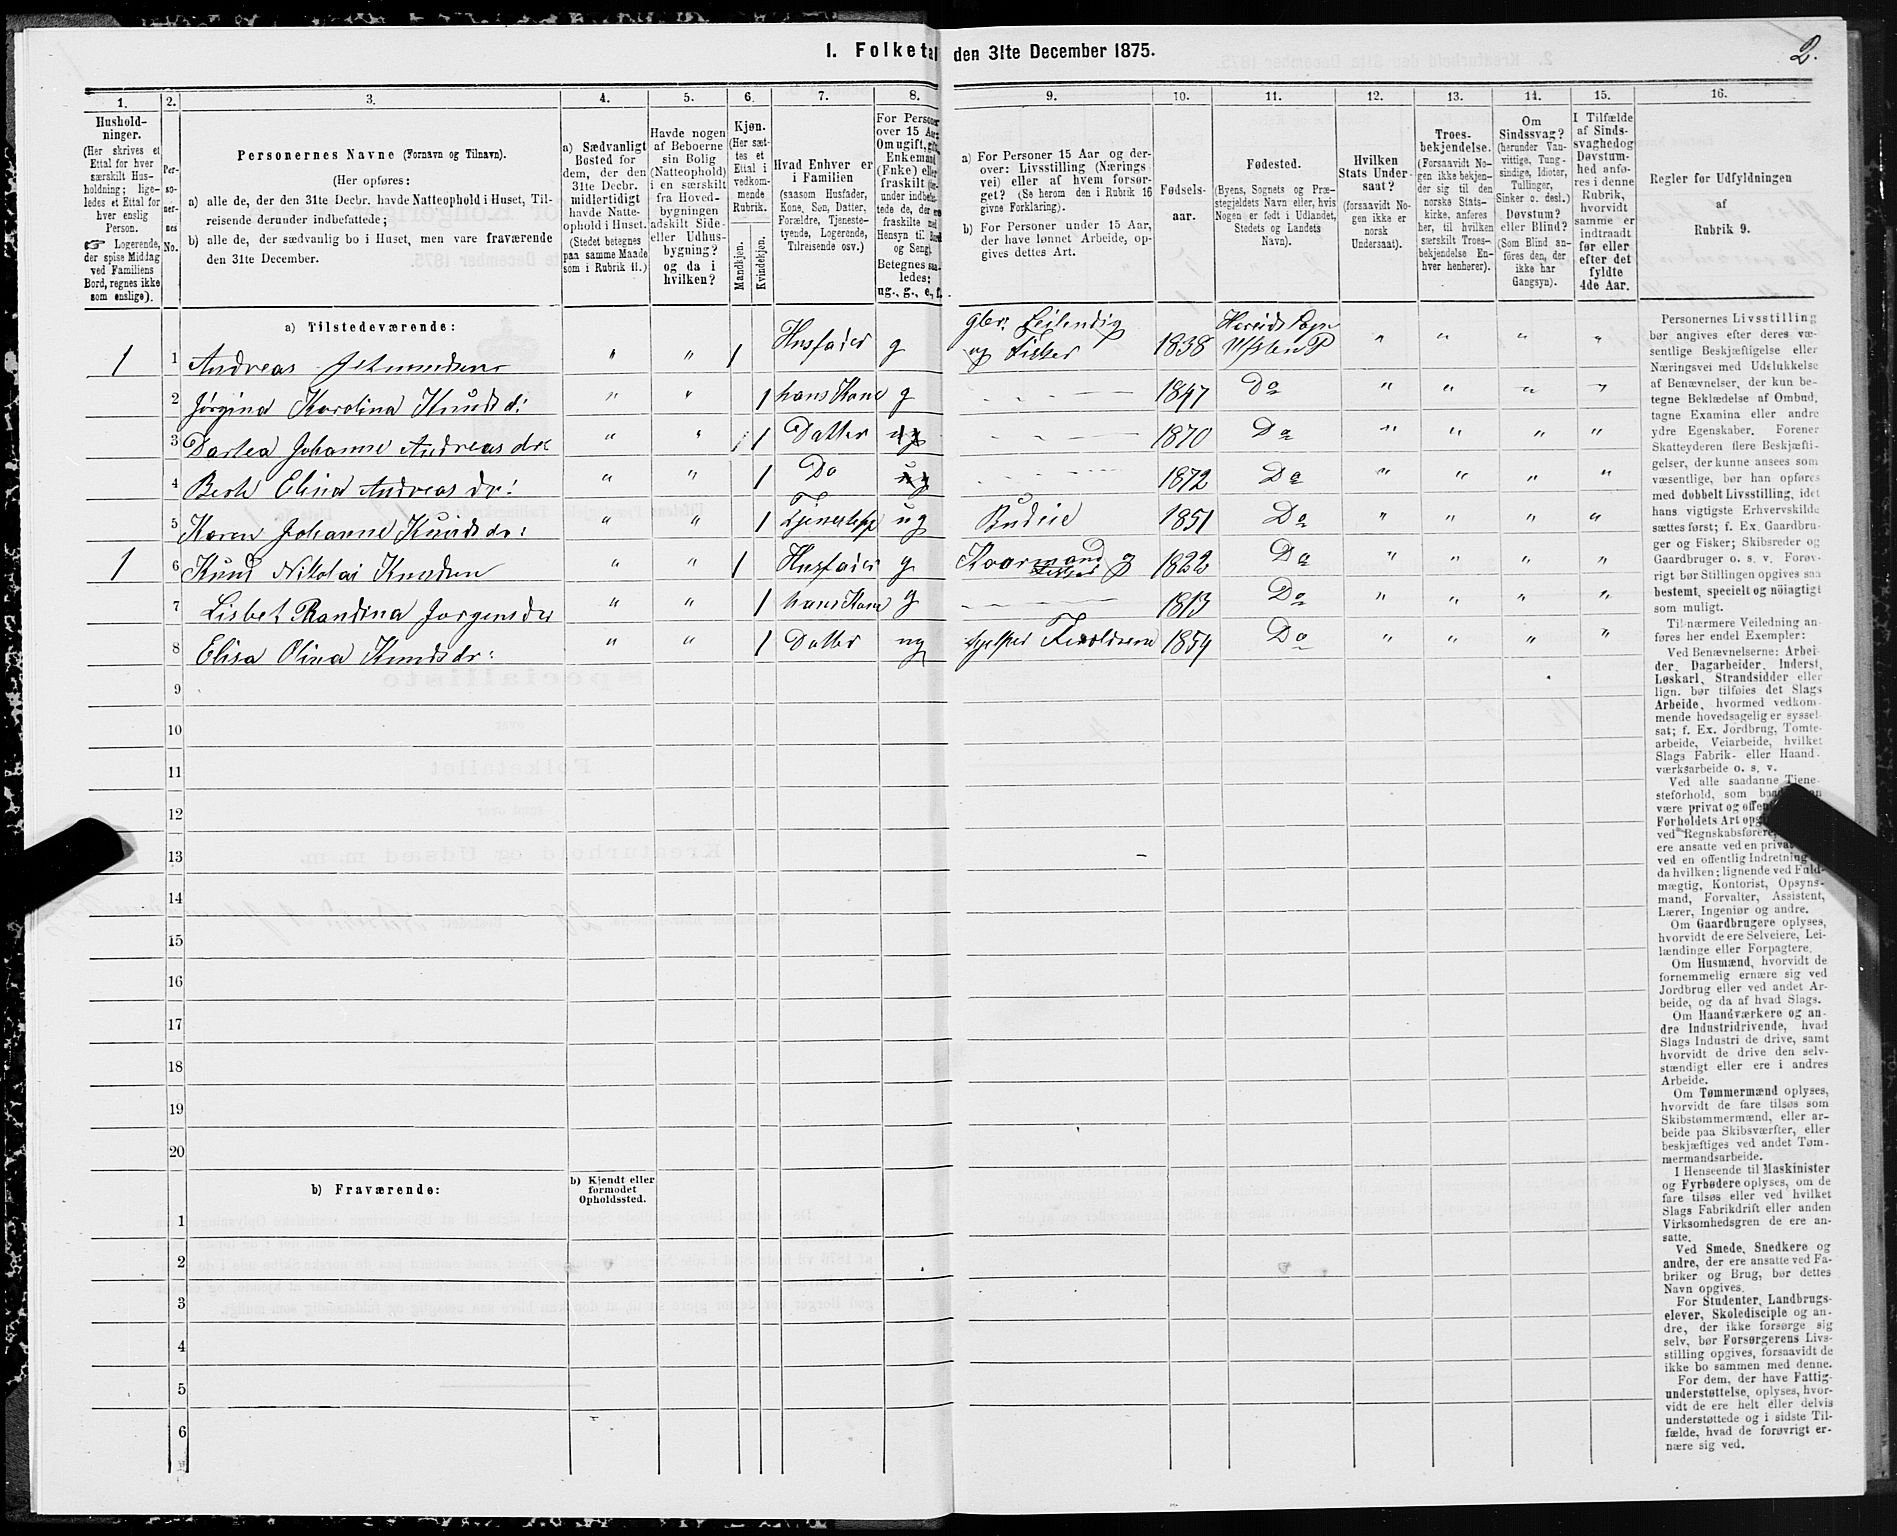 I. Folketal den 31te December 1875.
2.
1. 2. 3. 4. 5. 6. 7. 8. 9. 10. 11. 12. 13. 14. 15. 16.
Hushold-
ninger.
(Her skrives et
Ettal for hver
særskilt Hus-
holdning; lige-
ledes et Ettal for
hver enslig
Person.
☞ Logerende,
der spise Middag
ved Familiens
Bord, regnes ikke
som enslige).
Per-
so-
ner-
nes
No.
Personernes Navne (Fornavn og Tilnavn).
(Her opføres:
a) alle de, der den 31te Decbr. havde Natteophold i Huset, Til-
reisende derunder indbefattede;
b) alle de, der sædvanlig bo i Huset, men vare fraværende
den 31te December.
a) Sædvanligt
Bosted for
dem, der den
31te Decbr.
midlertidigt
havde Natte-
ophold i Huset.
(Stedet betegnes
paa samme Maade
som i Rubrik 11.)
Havde nogen
af Beboerne
sin Bolig
(Natteophold)
i en særskilt
fra Hoved-
bygningen
adskilt Side-
eller Udhus-
bygning?
og da i
hvilken?
Kjøn.
(Her sæt-
tes et
Ettal i
vedkom-
mende
Rubrik.
Mandkjøn.
Kvindekjøn.
Hvad Enhver er
i Familien
(saasom Husfader,
Kone, Søn, Datter,
Forældre, Tjeneste-
tyende, Logerende,
Tilreisende osv.)
For Personer
over 15 Aar
Om ugift, gift,
Enkemand
(Enke) eller
fraskilt
og Seng).
Betegnes saa-
ledes:
ug., g., e., f.
a) For Personer 15 Aar og der-
over: Livsstilling (Nærings-
vei) eller af hvem forsør-
get? (Se herom den i Rubrik 16
givne Forklaring).
b) For Personer under 15 Aar,
der have lønnet Arbeide, op-
gives dettes Art.
Fødsels-
aar.
Fødested.
(Byens, Sognets og Præ-
stegjeldets Navn eller, hvis
Nogen er født i Udlandet,
Stedets og Landets
Navn).
Hvilken
Stats Under-
saat?
(forsaavidt No-
gen ikke er
norsk
Undersaat).
Troes-
bekjendelse.
(Forsaavidt No-
gen ikke bekjen-
der sig til den
norske Stats-
kirke, anføres
her, til hvilken
særskilt Troes-
bekjendelse En-
hver henhører).
Om
Sindssvag?
(herunder Van-
vittige, Tung-
sindige, Idioter,
Tullinger,
Sinker o. desl.)
Døvstum?
eller Blind?
(Som Blind an-
føres den, der
ikke har
Gangsyn).
I Tilfælde
af Sinds-
svaghed og
Døvstum-
hed anfø-
res i denne
Rubrik,
hvorvidt
samme er
indtraadt
før eller
efter det
fyldte
4de Aar.
Regler for Udfyldningen
af
Rubrik 9.
a) Tilstedeværende:
1 1 Andreas " " 1 Husfader g gbr. Leilending og Fisker 1838 Hareid Sogn Ulfsten P " " " "
2 Jørgina Karolina Knudsd: " " 1 hans Kone g 1847 Do " " " "
3 Dortea Johanne Andreasdr " " 1 Datter ug 1870 Do " " " "
4 Berte Elina Andreasdr: " " 1 Do ug 1872 Do " " " "
5 Karen Johanne Knudsdr: " " 1 ug Budeie 1851 Do " " " "
1 6 Knud Nikolai Knudsen " " 1 Husfader g Kaarmand Fisker g 1822 Do " " " "
7 Lisbet Randina Jørgensdr " " 1 hans Kone g 1813 Do " " " "
8 Elisa Olina Knudsdr: " " 1 Datter ug hjelper Forældrene 1859 Do " " " "
9
10
11
12
13
14
15
16
17
18
19
20
b) Fraværende:
b) Kjendt eller
formodet
Opholdssted.
1
2
3
4
5
6
Personernes Livsstilling
bør angives efter deres væ-
sentlige Beskjæftigelse eller
Næringsvei med Udelukkelse
af Benævnelser, der kun be-
tegne Beklædelse af Ombud,
tagne Examina eller andre
ydre Egenskaber. Forener
Skatteyderen flere Beskjæfti-
gelser, der kunne ansees som
væsentlige, bør han opføres
med dobbelt Livsstilling, idet
hans vigtigste Erhvervskilde
sættes først; f. Ex. Gaardbru-
ger og Fisker; Skibsreder og
Gaardbruger o. s. v. Forøv-
rigt bør Stillingen opgives saa
bestemt, specielt og nöiagtigt
som muligt.
Til nærmere Veiledning an-
føres her endel Exempler:
Ved Benævnelserne: Arbei-
der, Dagarbeider, Inderst,
Løskarl, Strandsidder eller
lign. bør tilføies det Slags
Arbeide, hvormed vedkom-
mende hovedsagelig er syssel-
sat; f. Ex. Jordbrug, Tomte-
arbeide, Veiarbeide, hvilket
Slags Fabrik- eller Haand-
værksarbeide o. s. v.
Ved alle saadanne Tjene-
steforhold, som
være privat og
Forholdets Art
ved Regnskabsførere,
ere ansatte ved en privat
ved en offentlig Indretning
da hvilken; lignende ved Fuld-
mægtig, Kontorist, Opsyns-
mand, Forvalter, Assistent,
Lærer, Ingeniør og andre.
Om Gaardbrugere oplyses,
hvorvidt de ere Selveiere, Lei-
lændinge eller Forpagtere.
Om Husmænd, hvorvidt de
fornemmelig ernære sig ved
Jordbrug eller ved andet Ar-
beide, og da af hvad Slags.
Om Haandværkere og an-
dre Industridrivende, hvad
Slags Industri de drive, samt
hvorvidt de drive den selv-
stændigt eller ere i andres
Arbeide.
Om Tømmermænd oplyses,
hvorvidt de fare tilsøs som
Skibstømmermænd, eller ar-
beide paa Skibsværfter, eller
beskjæftiges ved andet Tøm-
mermandsarbeide.
I Henseende til Maskinister
og Fyrbødere oplyses, om de
fare tilsøs eller ved hvilket
Slags Fabrikdrift eller anden
Virksomhedsgren de ere an-
satte.
Ved Smede, Snedkere og
andre, der ere ansatte ved Fa-
briker og Brug, bør dettes
Navn opgives.
For Studenter, Landbrugs-
elever, Skoledisciple og an-
dre, der ikke forsørge sig
selv, bør Forsørgerens Livs-
stilling opgives, forsaavidt de
ikke bo sammen med denne.
For dem, der have Fattig-
understøttelse, oplyses, hvor-
vidt de ere helt eller delvis
understøttede og i sidste Til-
fælde, hvad de forøvrigt er-
nære sig ved.